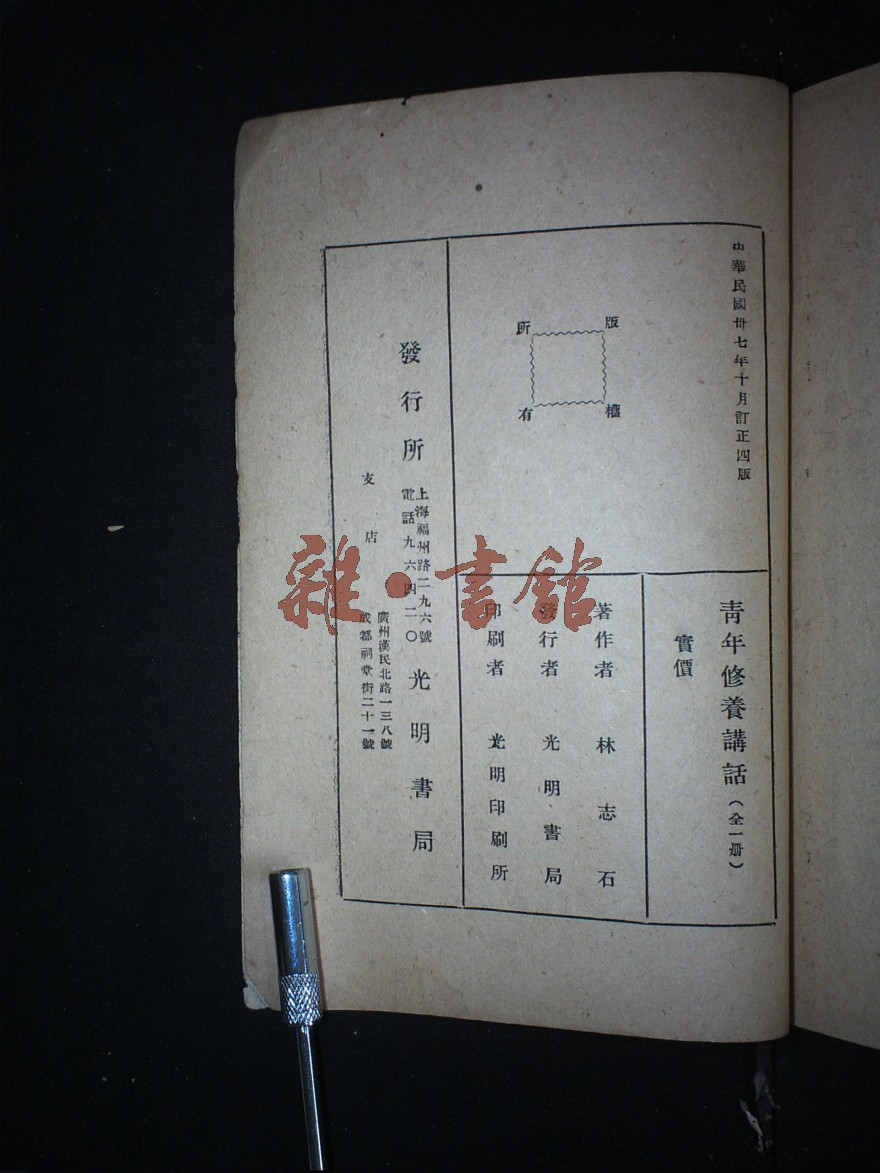 中華民國卅七年十月訂正四版
版權所有
青年修養講話（全一册）
實價
著作者 林志石
發行者 光明書局
印刷者 光明印刷所
發行所 光明書局
上海福州路二九六號
電話九六四二〇
支店
廣州漢民北路一三八號
成都祠堂街二十一號
雜·書館